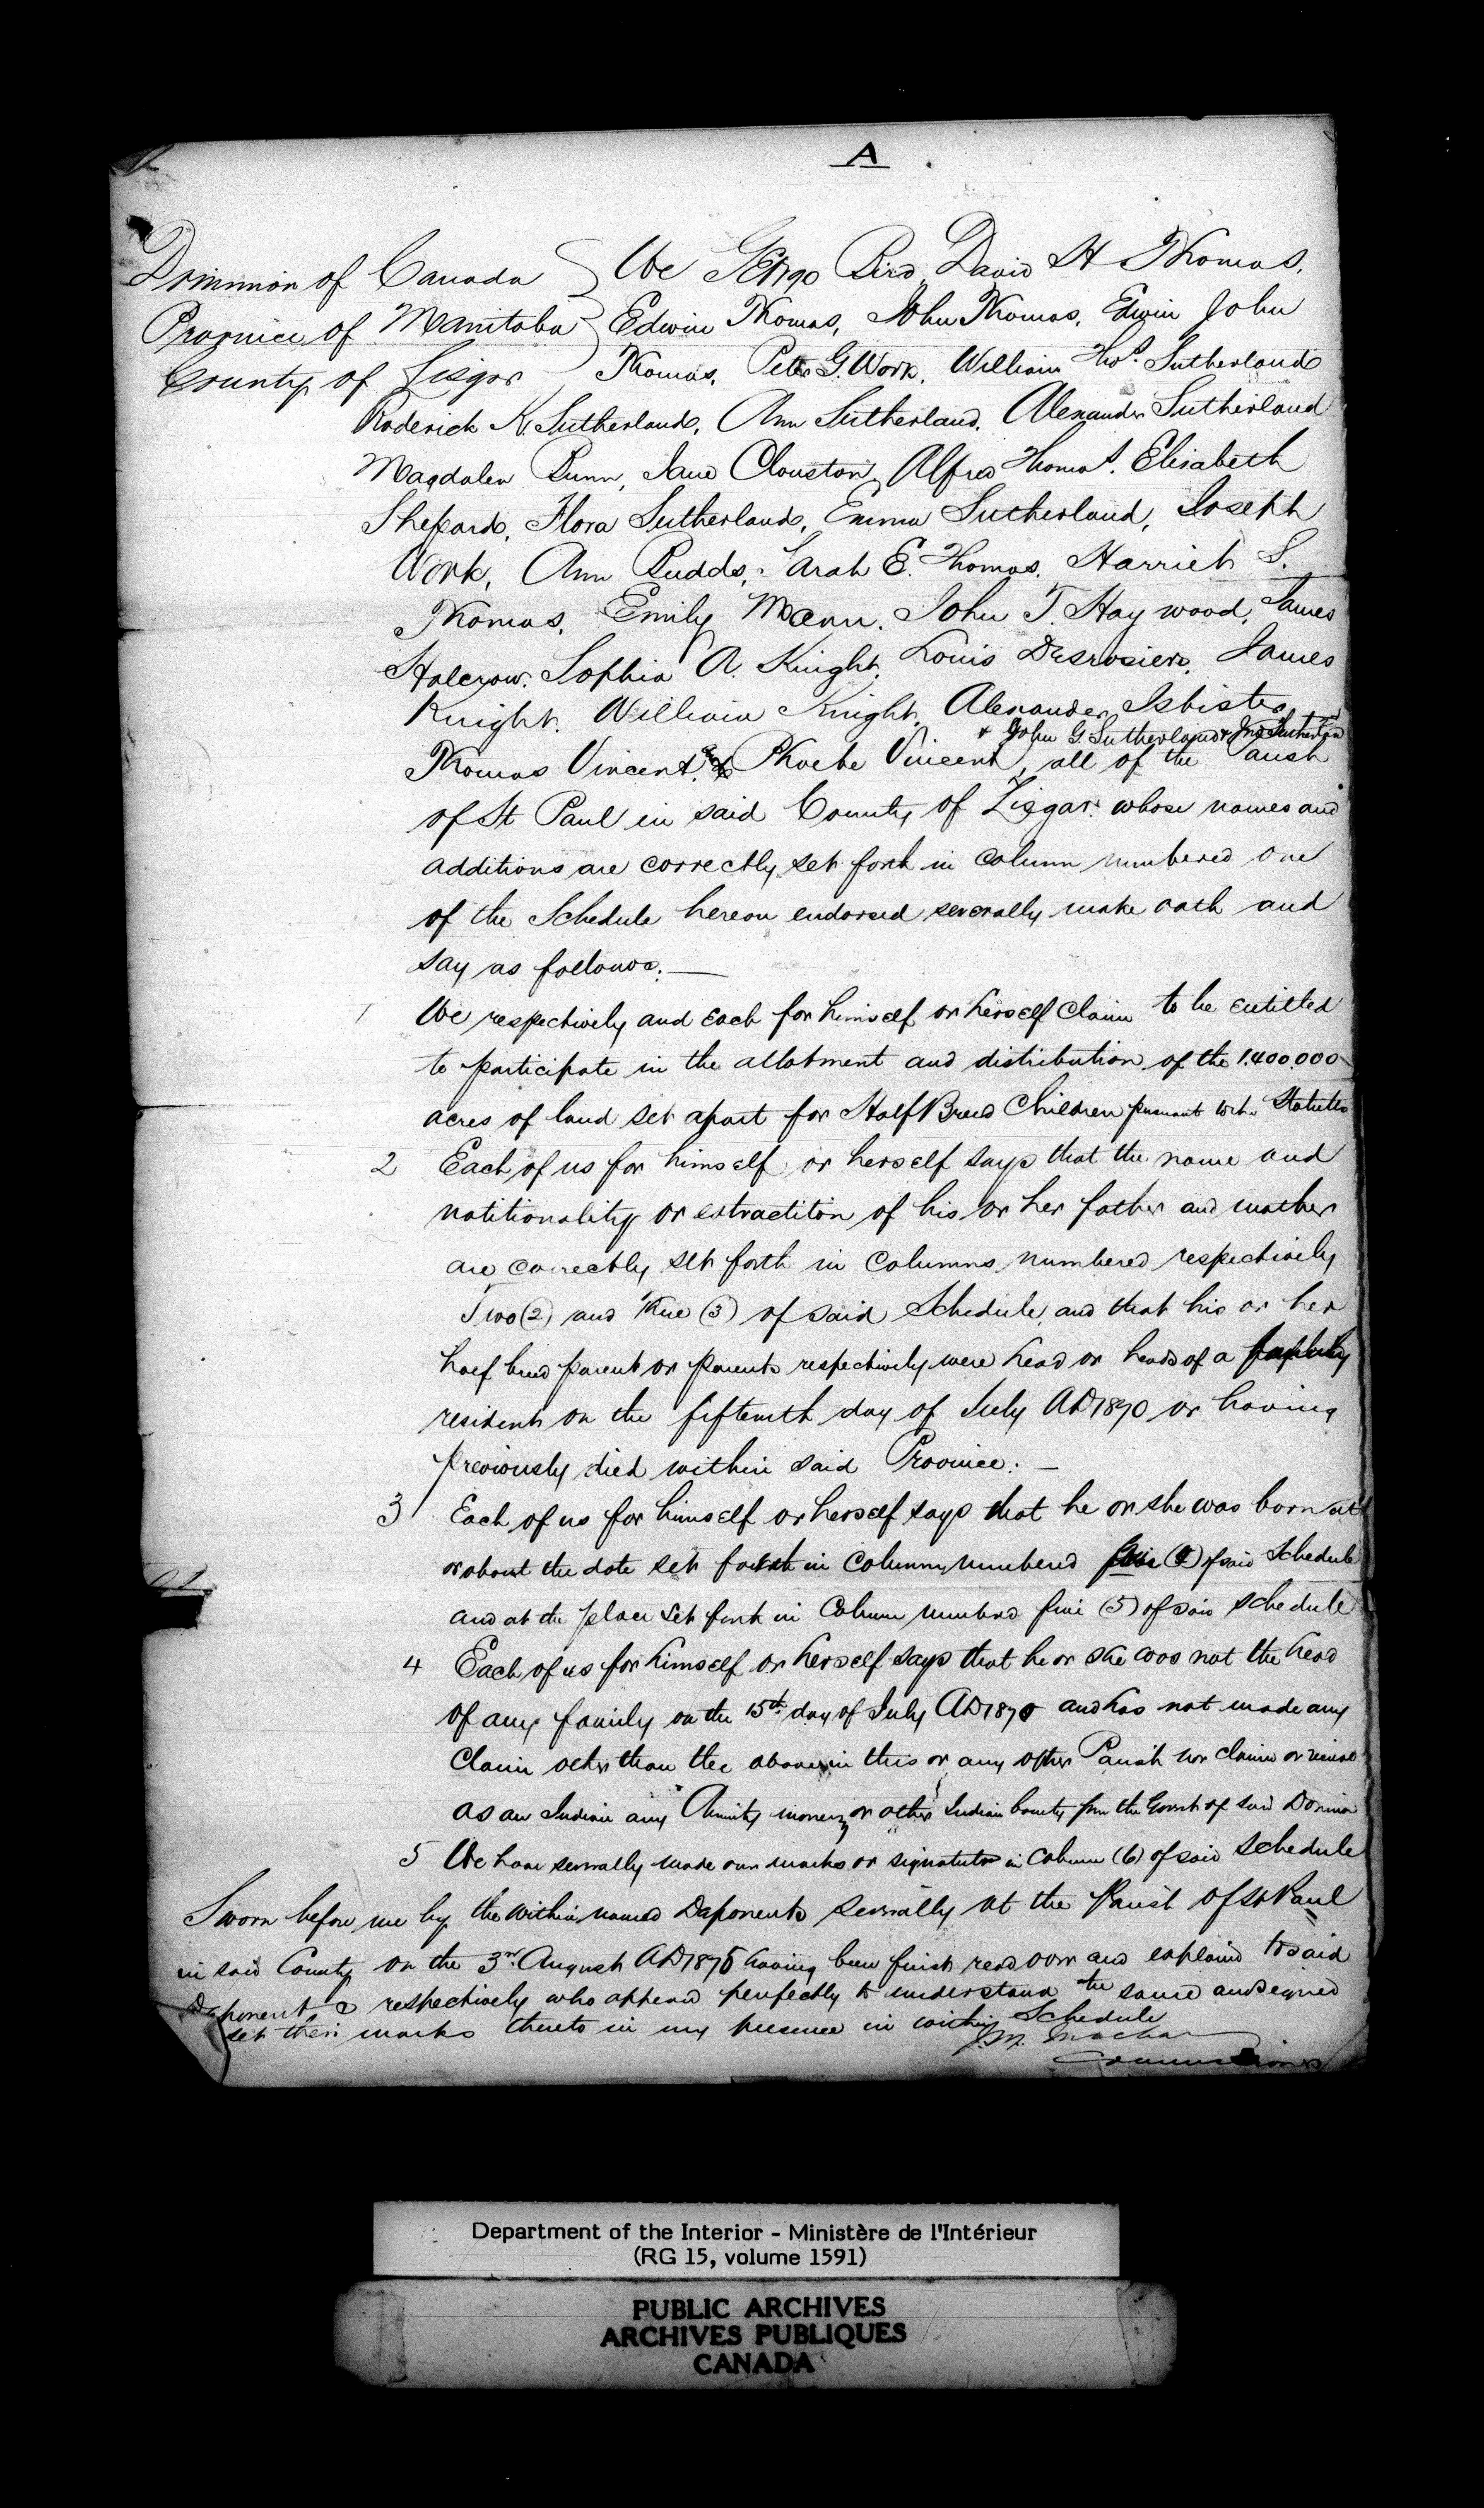 A
Dominion of Canada } We George Bird, David H Thomas,
Province of Manitoba } Edwin Thomas, John Thomas, Edwin John
County of Lisgar } Thomas, Peter G. Work, William Thos. Sutherland
Roderick K. Sutherland, Ann Sutherland, Alexander Sutherland
Magdalen Bunn, Jane Clouston, Alfred Thomas, Elisabeth
Shepard, Flora Sutherland, Emma Sutherland, Joseph
Work, Ann Budd, Sarah E. Thomas, Harriet S.
Thomas, Emily Mann, John T. Haywood, James
Halcrow, Sophia A. Knight, Louis Desrosiers, James
Knight, William Knight, Alexander Isbister,
& John G Sutherland & Jno Sutherland
Thomas Vincent, Phoebe Vincent, all of the Parish
of St Paul in said County of Lisgar whose names and
additions are correctly set forth in column numbered one
of the Schedule hereon endorsed severally make oath and
say as follows. —
1 We respectively and each for himself or herself claim to be entitled
to participate in the allotment and distribution of the 1.400.000
acres of land set apart for Half Breed Children pursuant to the Statutes
2 Each of us for himself or herself says that the name and
natitionality or extractiton of his or her father and mother
are correctly set forth in columns numbered respectively
Two (2) and Three (3) of said Schedule, and that his or her
half breed parent or parents respectively were head or heads of a family
resident on the fifteenth day of July AD 1870 or having
previously died within said Province. —
3 Each of us for himself or herself says that he or she was born at
or about the date set forth in column numbered of said Schedule
and at the place set forth in Column numbered five (5) of said schedule
4 Each of us for himself or herself says that he or she was not the head
of any family on the 15th day of July AD 1870 and has not made any
Claim other than the above in this or any other Parish nor claimed or received
as an Indian any Annuity money or other Indian bounty from the Govmt of said Dominion
5 We have severally made our marks or signatures in Column (6) of said schedule
Sworn before me by the within named Deponents severally at the Parish of St Paul
in said County on the 3rd August AD 1875 having been first read over and explained to said
Deponents respectively who appeared perfectly to understand the same and signed
set their marks thereto in my presence in within Schedule
J.M. Machar
Commissioner
Department of the Interior - Ministère de l'Intérieur
(RG 15, volume 1591)
PUBLIC ARCHIVES
ARCHIVES PUBLIQUES
CANADA